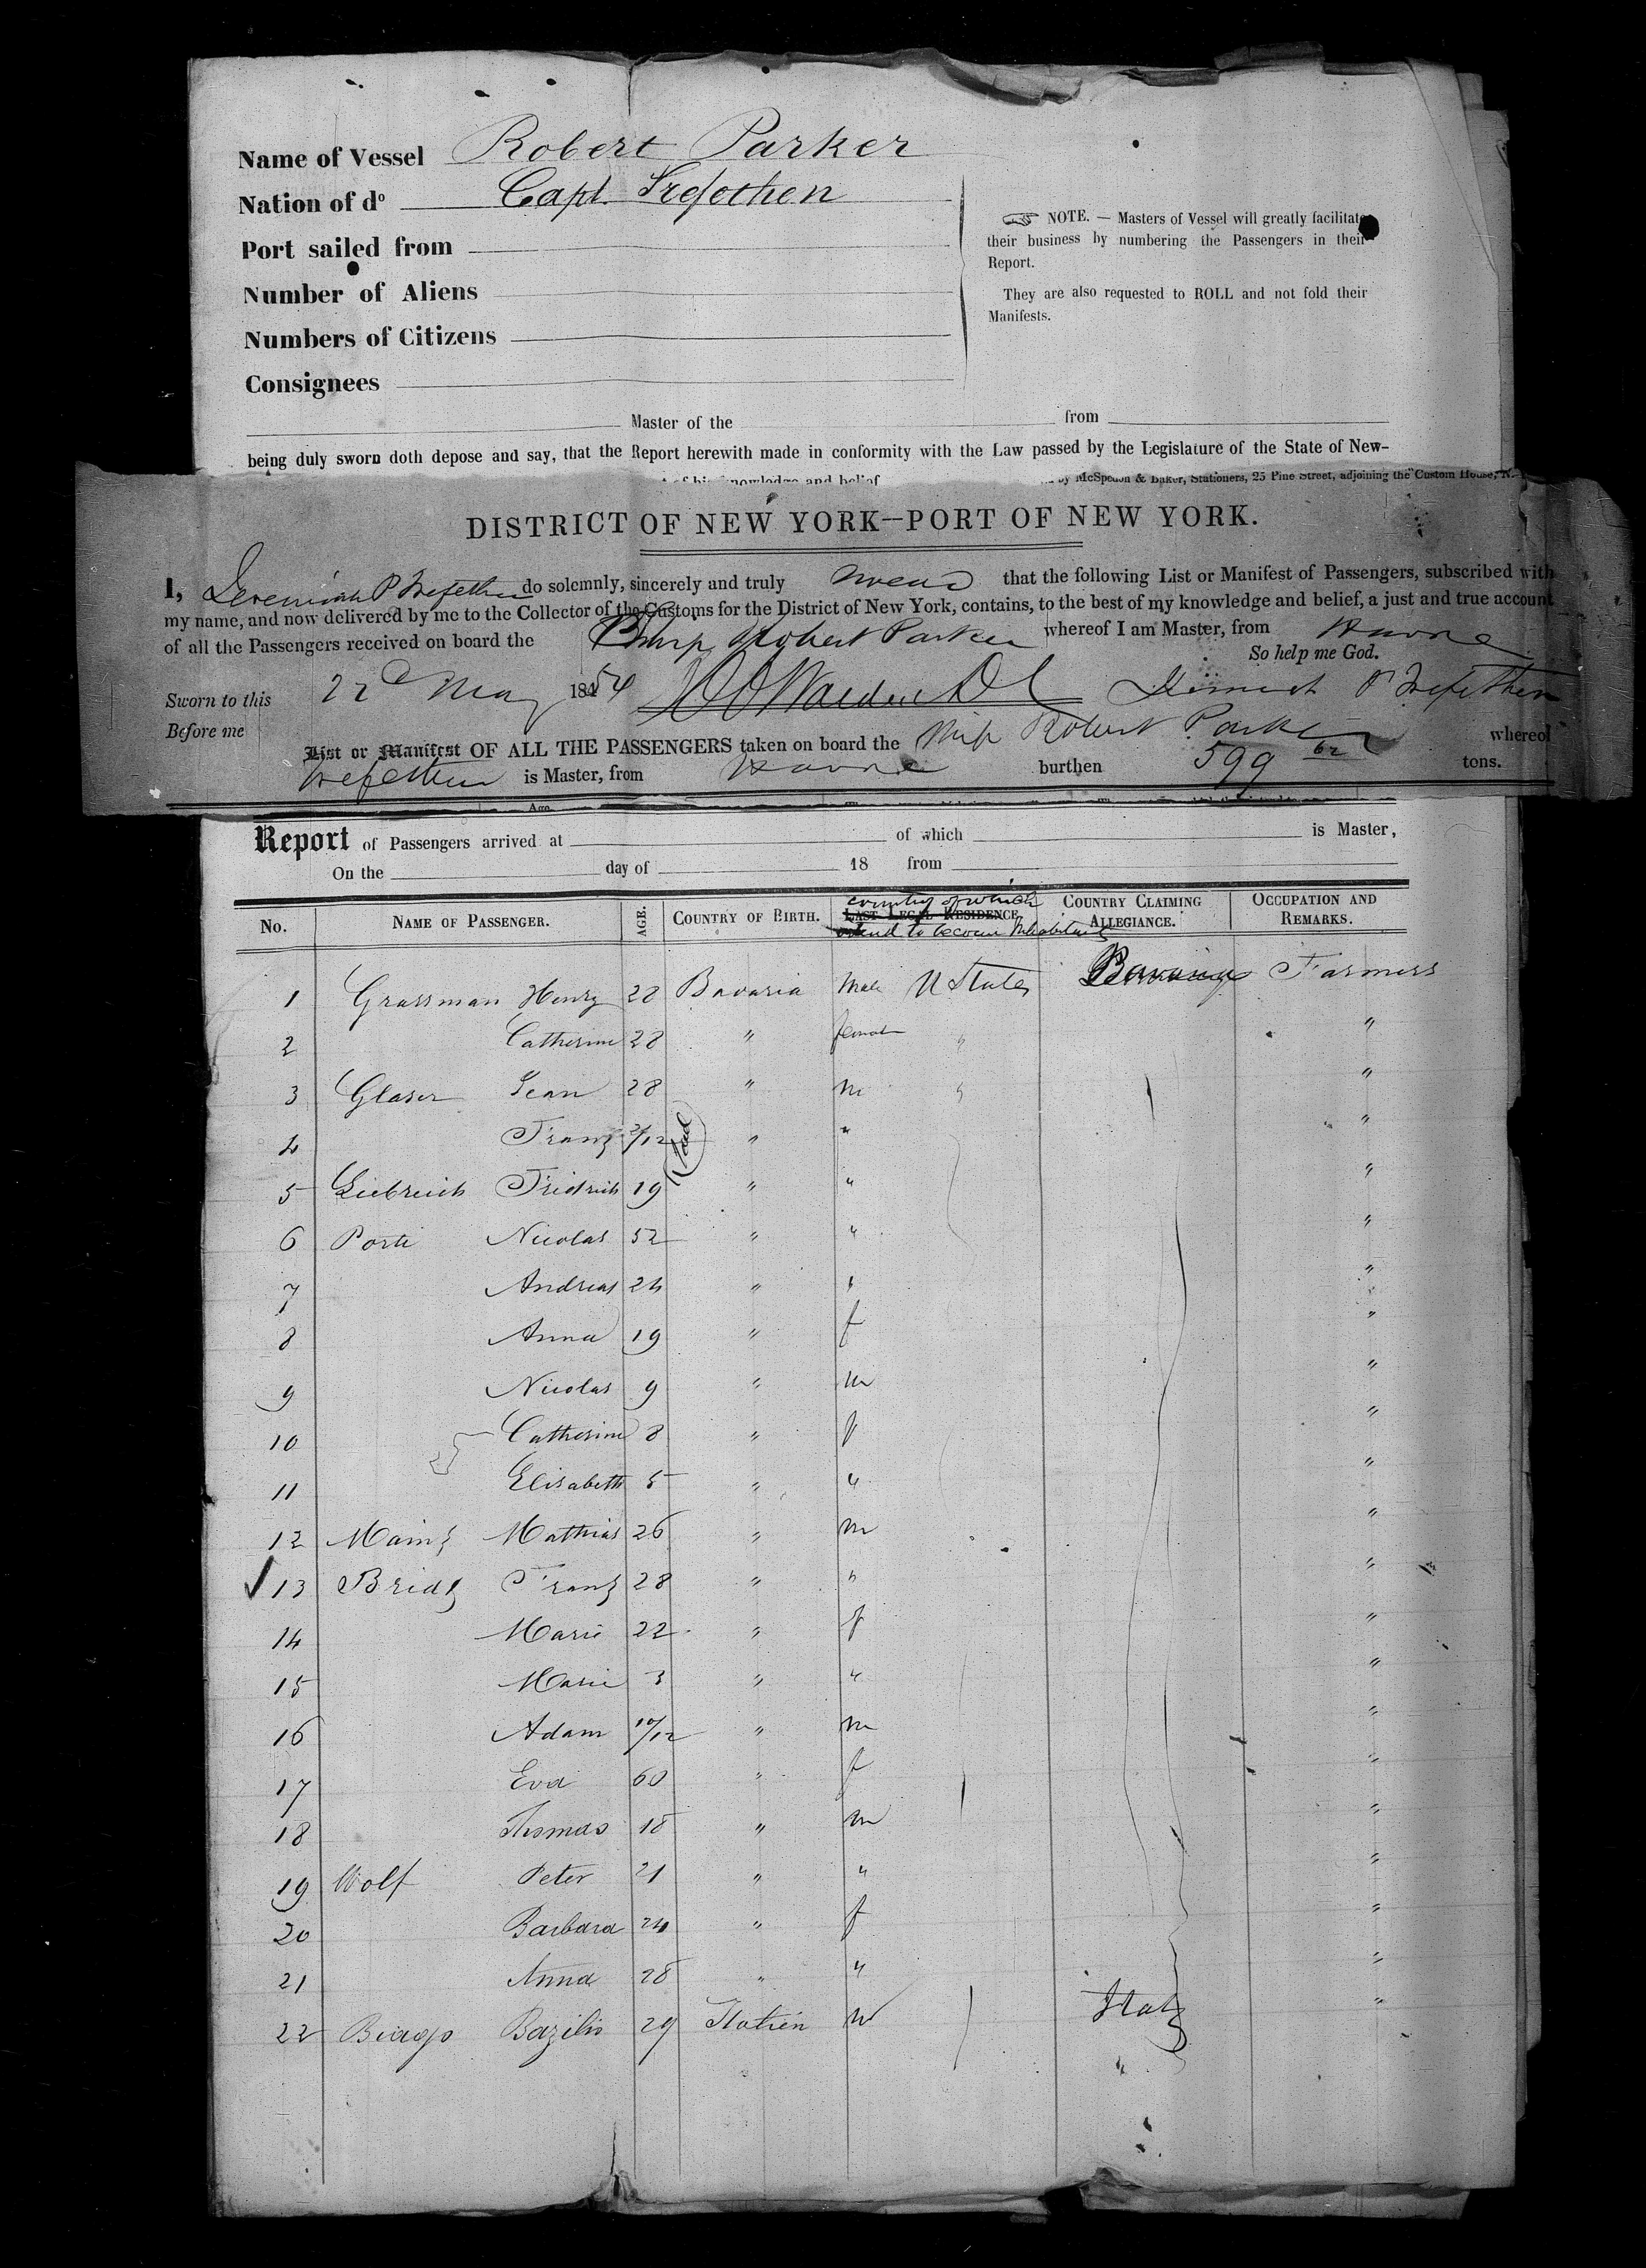 Name of Vessel Robert Parker
Nation of do Capt. Trefethen
Port sailed from
Number of Aliens
Numbers of Citizens
Consignees
NOTE. — Masters of Vessel will greatly facilitate
their business by numbering the Passengers in their
Report.
They are also requested to ROLL and not fold their
Manifests.
Master of the from
being duly sworn doth depose and say, that the Report herewith made in conformity with the Law passed by the Legislature of the State of New-
of his knowledge and belief by McSpedon & Baker, Stationers, 25 Pine Street, adjoining the Custom House, N.
DISTRICT OF NEW YORK—PORT OF NEW YORK.
I, Jeremiah P Trefethen do solemnly, sincerely and truly swear that the following List or Manifest of Passengers, subscribed with
my name, and now delivered by me to the Collector of the Customs for the District of New York, contains, to the best of my knowledge and belief, a just and true account
of all the Passengers received on board the Ship Robert Parker whereof I am Master, from Havre
So help me God.
Sworn to this 22d May 1854 Jeremiah P Trefethen
Before me
List or Manifest OF ALL THE PASSENGERS taken on board the Ship Robert Parker whereof
Trefethen is Master, from Havre burthen 599 62 tons.
Age.
Report of Passengers arrived at of which is Master,
On the day of 18 from
No. NAME OF PASSENGER. AGE. COUNTRY OF BIRTH. LAST LEGAL RESIDENCE country of which intend to become Inhabitants COUNTRY CLAIMING ALLEGIANCE. OCCUPATION AND REMARKS.
1 Grassman Henry 28 Bavaria Male U States Bavaria Farmers
2 Catherine 28 " female " "
3 Glaser Jean 28 " m " "
4 Franz 2/12 dead " " "
5 Liebreich Fridrich 19 " " "
6 Porti Nicolas 52 " " "
7 Andreas 24 " " "
8 Anna 19 " f "
9 Nicolas 9 " m "
10 Catherine 8 " f "
11 Elisabeth 5 " " "
12 Mainz Mathias 26 " m "
13 Bridz Franz 28 " " "
14 Marie 22 " f "
15 Marie 3 " " "
16 Adam 10/12 " m "
17 Eva 60 " f "
18 Thomas 18 " m "
19 Wolf Peter 21 " " "
20 Barbara 24 " f "
21 Anna 28 " " "
22 Biago Bazilio 29 Italien m Italy "
"